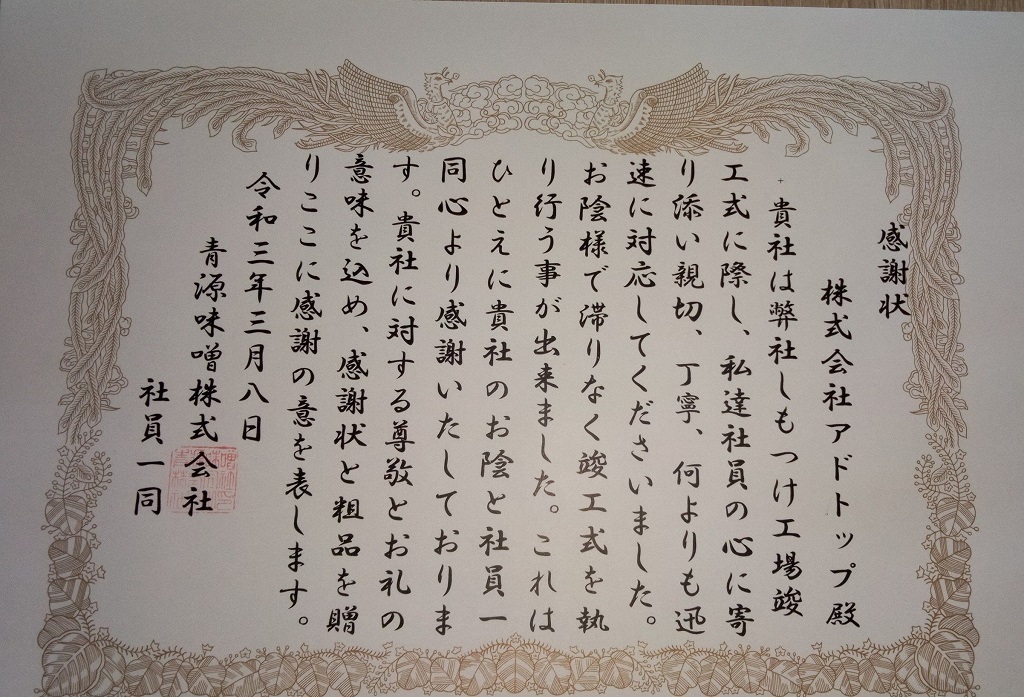 感謝状
株式会社アドトップ殿
貴社は弊社しもつけ工場竣
工式に際し、私達社員の心に寄
り添い親切、丁寧、何よりも迅
速に対応してくださいました。
お陰様で滞りなく竣工式を執
り行う事が出来ました。これは
ひとえに貴社のお陰と社員一
同心より感謝いたしておりま
す。貴社に対する尊敬とお礼の
意味を込め、感謝状と粗品を贈
りここに感謝の意を表します。
令和三年三月八日
青源味噌株式会社
社員一同